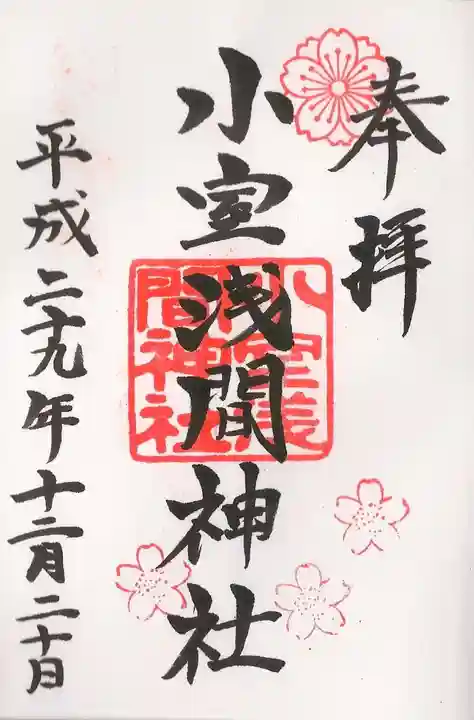 奉拝
小室浅間神社
平成二十九年十二月二十日
小室浅
間神社